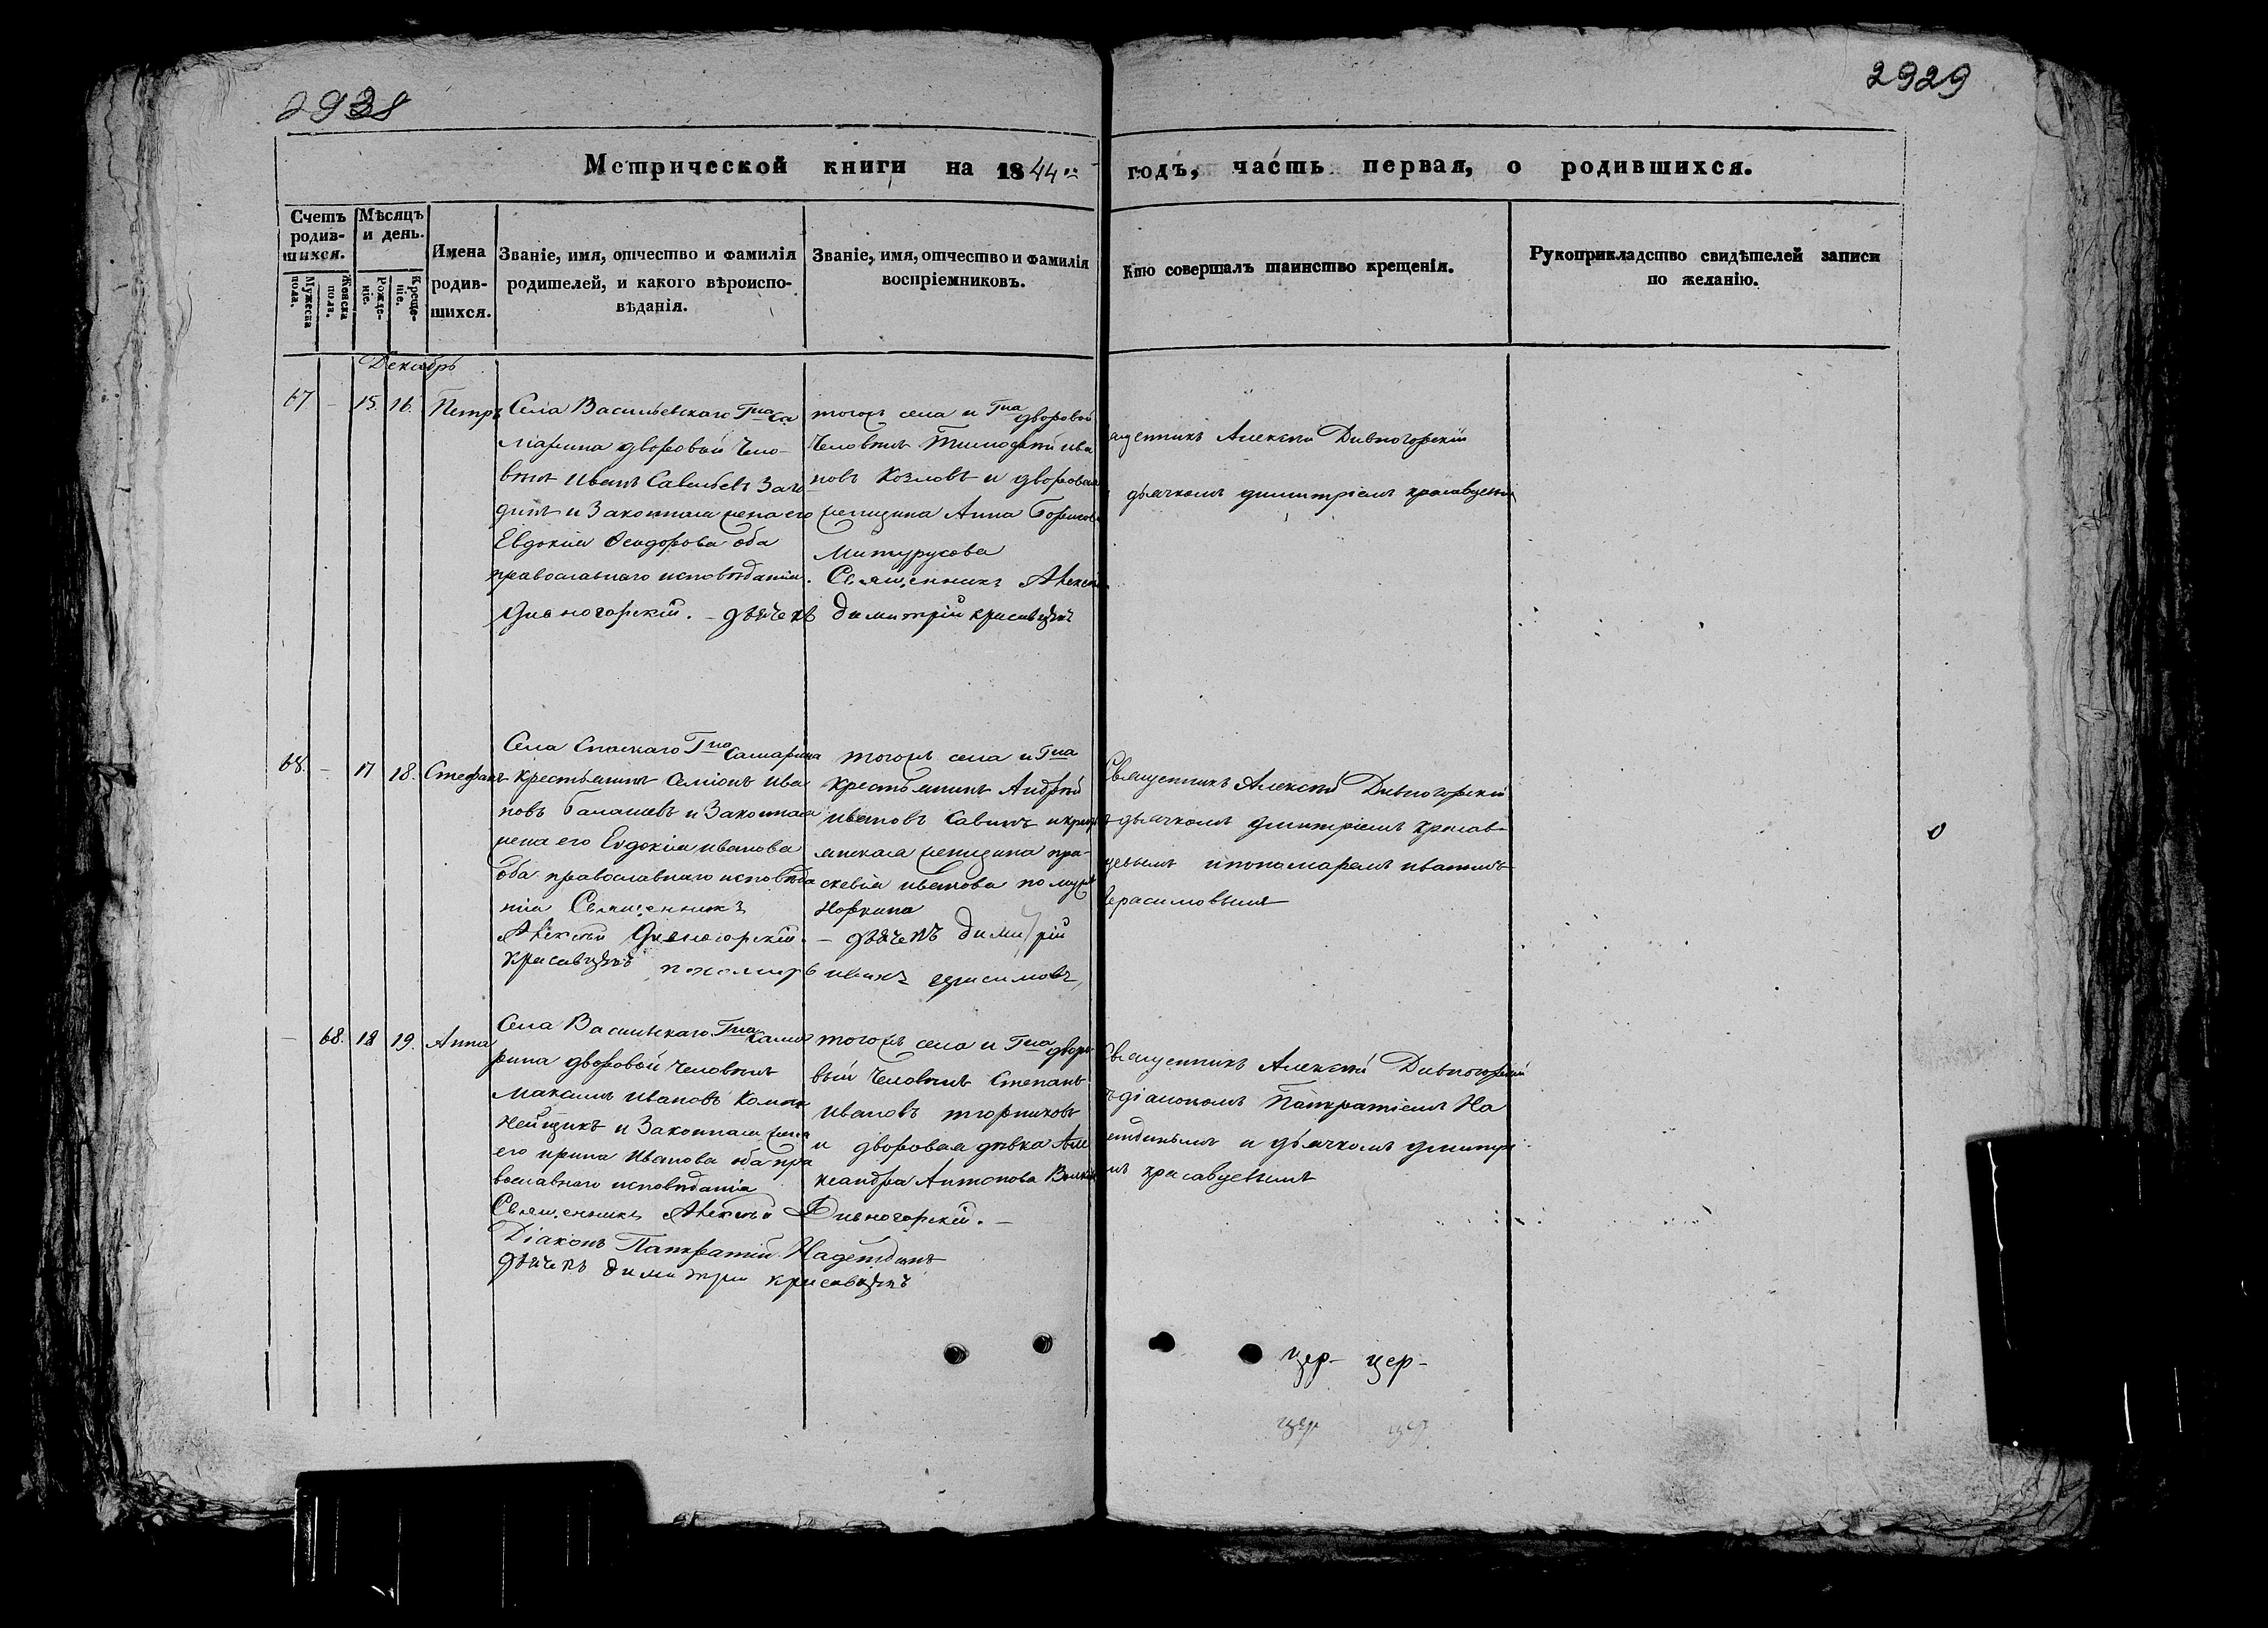 2938
2929
Метрической книги на 1844й годъ, часть первая, о родившихся.
Счетъ родив-шихся.
Мужеска пола.
Женска пола.
Мѣсяцъ и день.
Рожде-ніе.
Креще-ніе.
Имена родив-шихся.
Званіе, имя, отчество и фамилія
родителей, и какого вѣроиспо-
вѣданія.
Званіе, имя, отчество и фамилія
воспріемниковъ.
Кто совершалъ таинство крещенія.
Рукоприкладство свидѣтелей записи
по желанію.
Декабрь
67 - 15. 16. Петръ
Села Васильевскаго Гна Са
марина дворовый чело-
вѣкъ Иванъ Савельевъ
и Законная жена его
Евдокія Ѳеодорова оба
православнаго исповѣданія.
тогожъ села и Гна дворовой
Человѣкъ Тимофей ива
новъ Козловъ и дворовая
женщина Анна Борисов
Митурусова
Священникъ Алексій
Дивногорскій. - дьячекъ димитрій красавцевъ
щенникъ Алексѣй Дивногорскій
дьячкомъ димитріемъ красавцевы
68. - 17 18. Стефанъ
Села Спаскаго Гна Самарина
крестьянинъ Семіонъ Ива
новъ Балашевъ и Законная
жена его Евдокія иванова
оба православнаго исповѣда
нія Священникъ
Алексѣй Дивногорскій.
тогожъ села и Гна
крестьянинъ Андрей
ивановъ Савинъ и крест
янская женщина пра-
скевія иванова
Норкина
- дьячекъ димитрій
красавцевъ пономарь иванъ герасимовъ,
Священникъ Алексѣй Дивногорскій
дьячкомъ димитріемъ красав-
цевымъ и пономаремъ иваномъ
герасимовымъ
- 68. 18 19. Анна
Села Васильскаго Гна Сама
рина дворовой человѣкъ
Максимъ Ивановъ
и Законная жена
его ирина Иванова оба пра
вославнаго исповѣданія
тогожъ села и Гна дворо
вый человѣкъ Степанъ
Ивановъ
и дворовая дѣвка Але
ксандра Антонова
Священникъ Алексѣй Дивногорскій. -
Діаконъ Панкратій Надеждинъ
дьячекъ димитрій красавцевъ
Священникъ Алексѣй Дивногорскій
діакономъ Панкратіемъ На
еждинымъ и дьячкомъ димитрі
мъ красавцевымъ
цер- цер-
цер цер